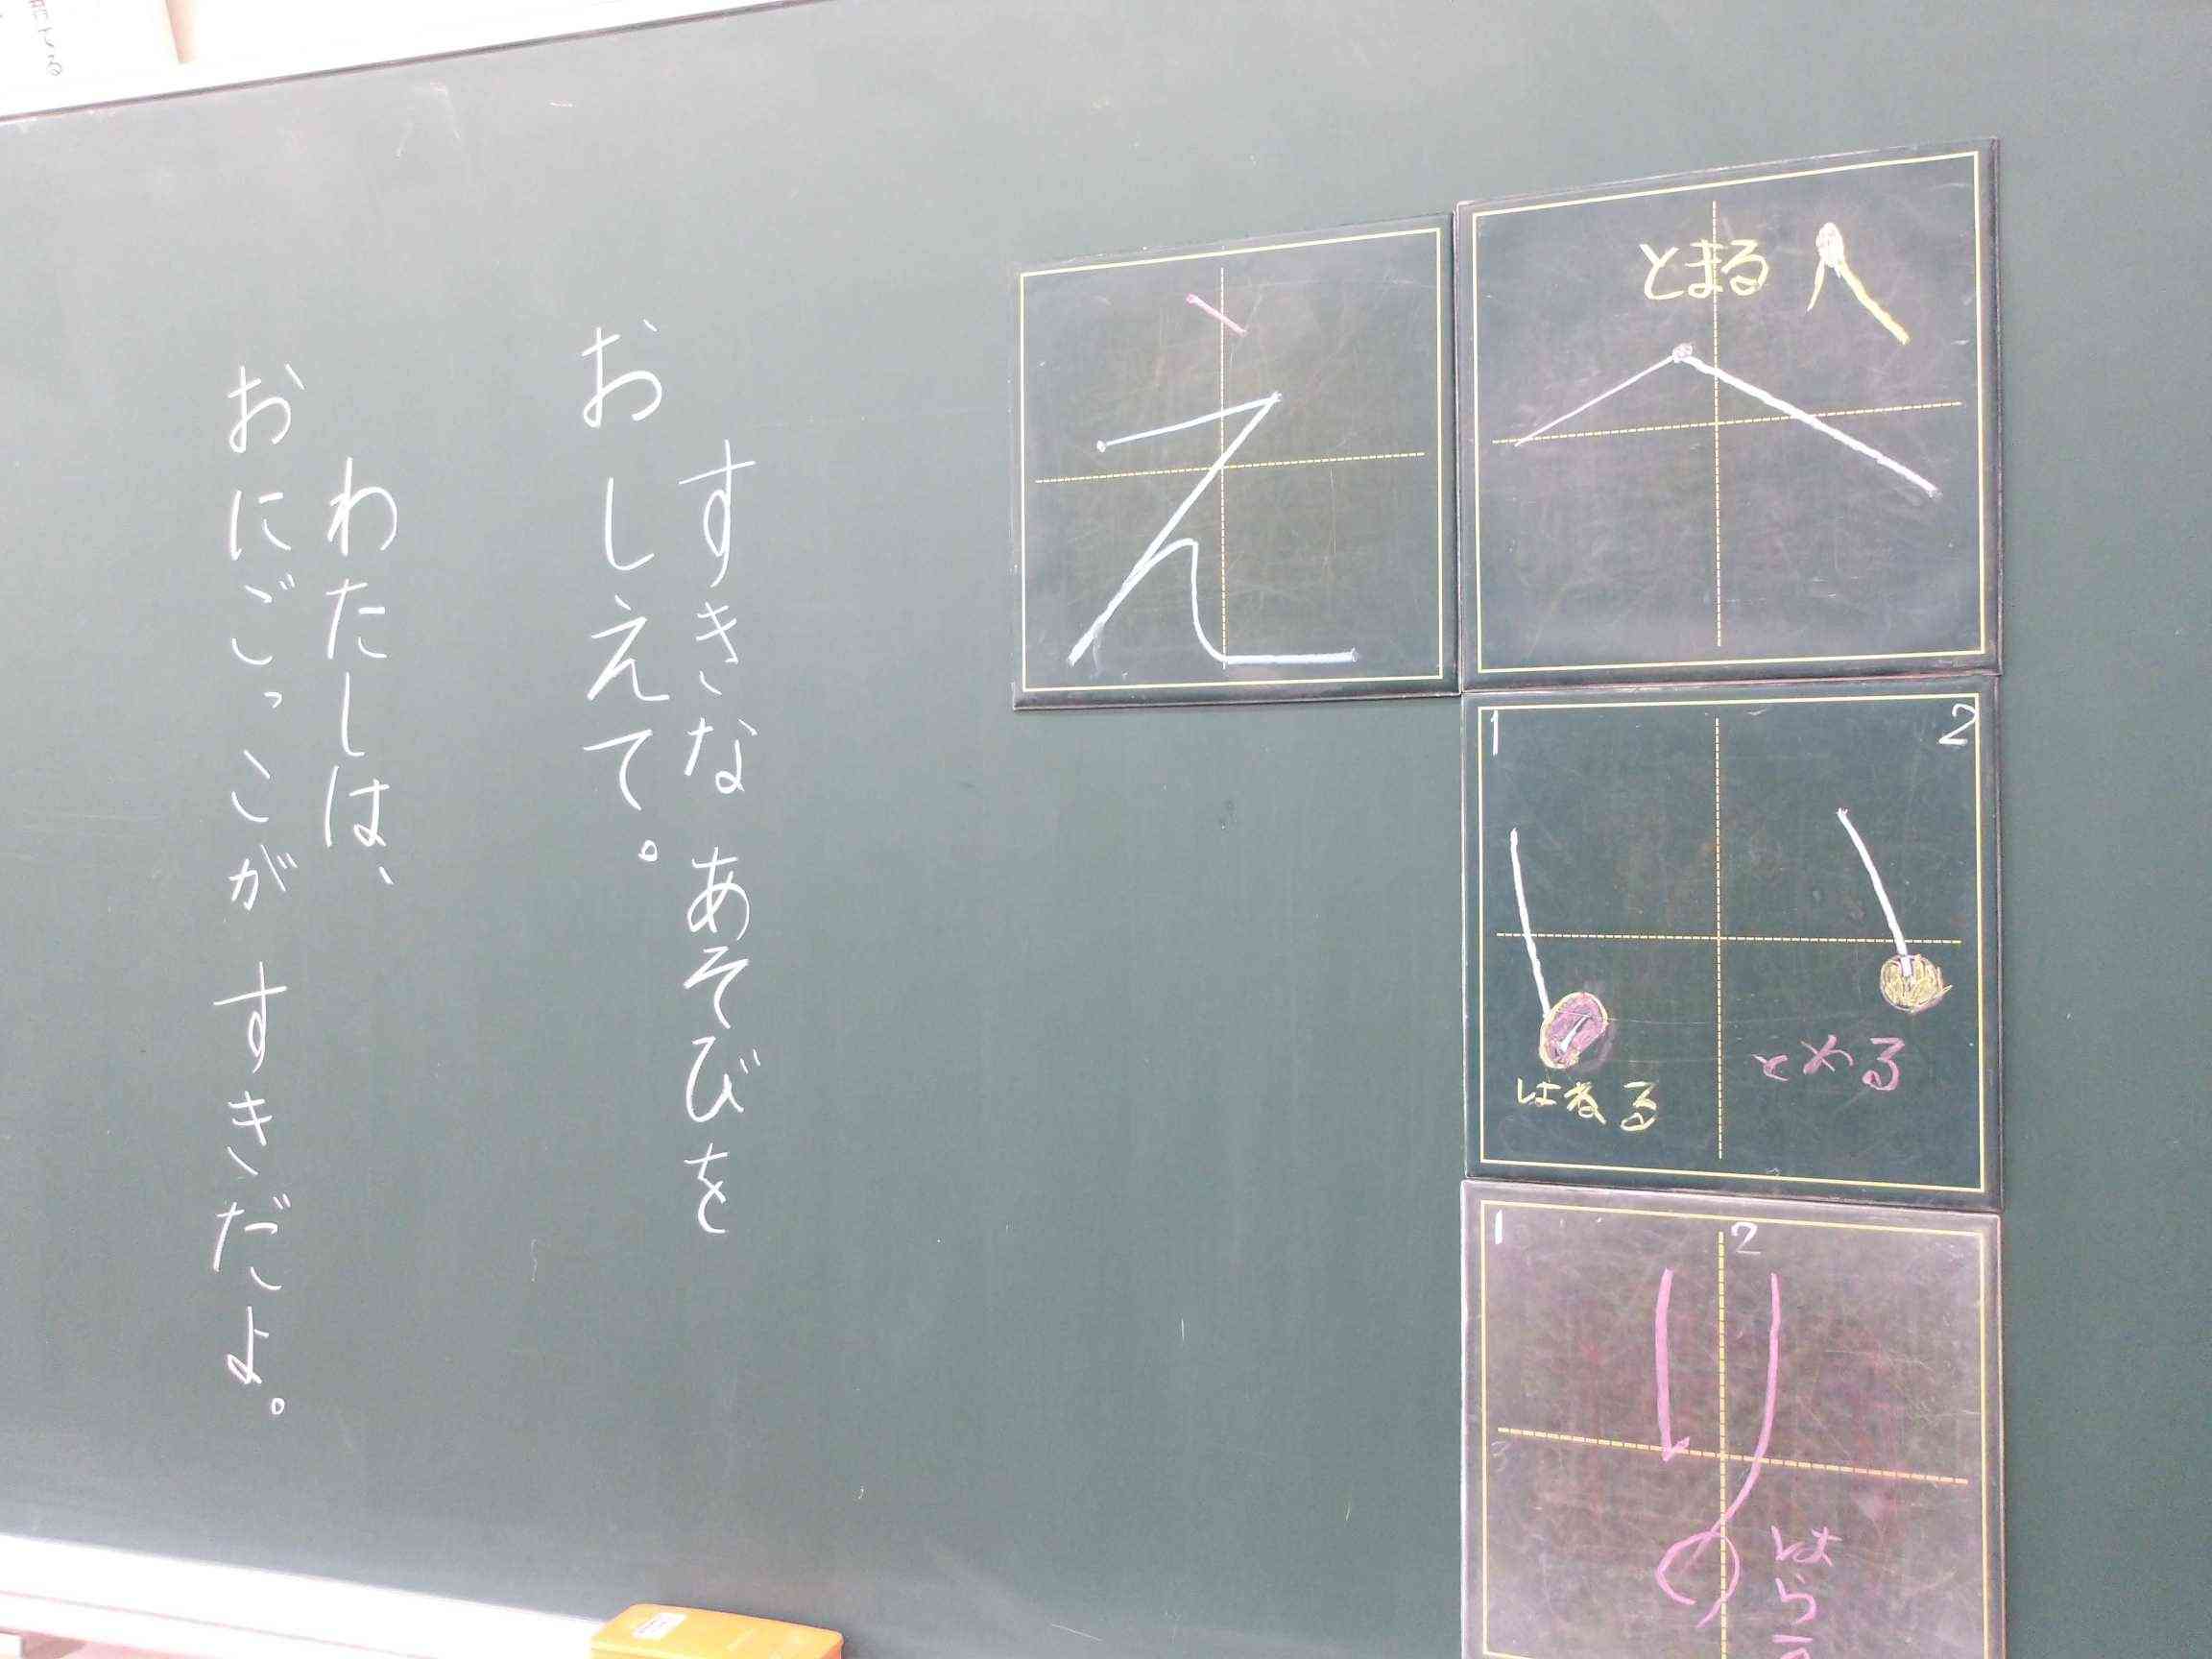 とまる
へ
1
2
い
はねる
とめる
1
2
り
はらう
え
すきな あそびを
おしえて。
わたしは、
おにごっこが すきだよ。